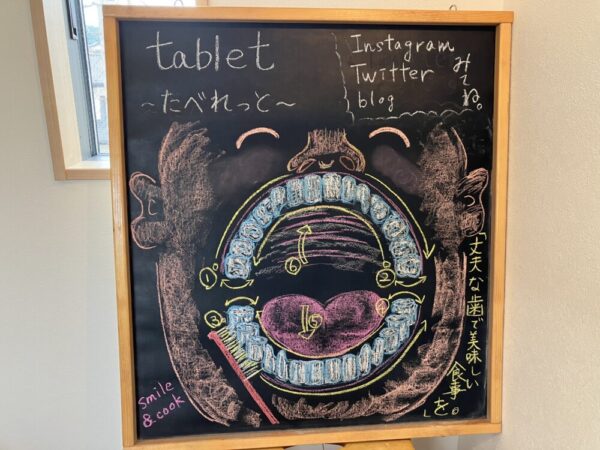 tablet
～たべれっと～
Instagram
Twitter
blog
みてね。
①
②
③
④
⑤
⑥
「丈夫な歯で美味しい
食事を。」
smile
& cook